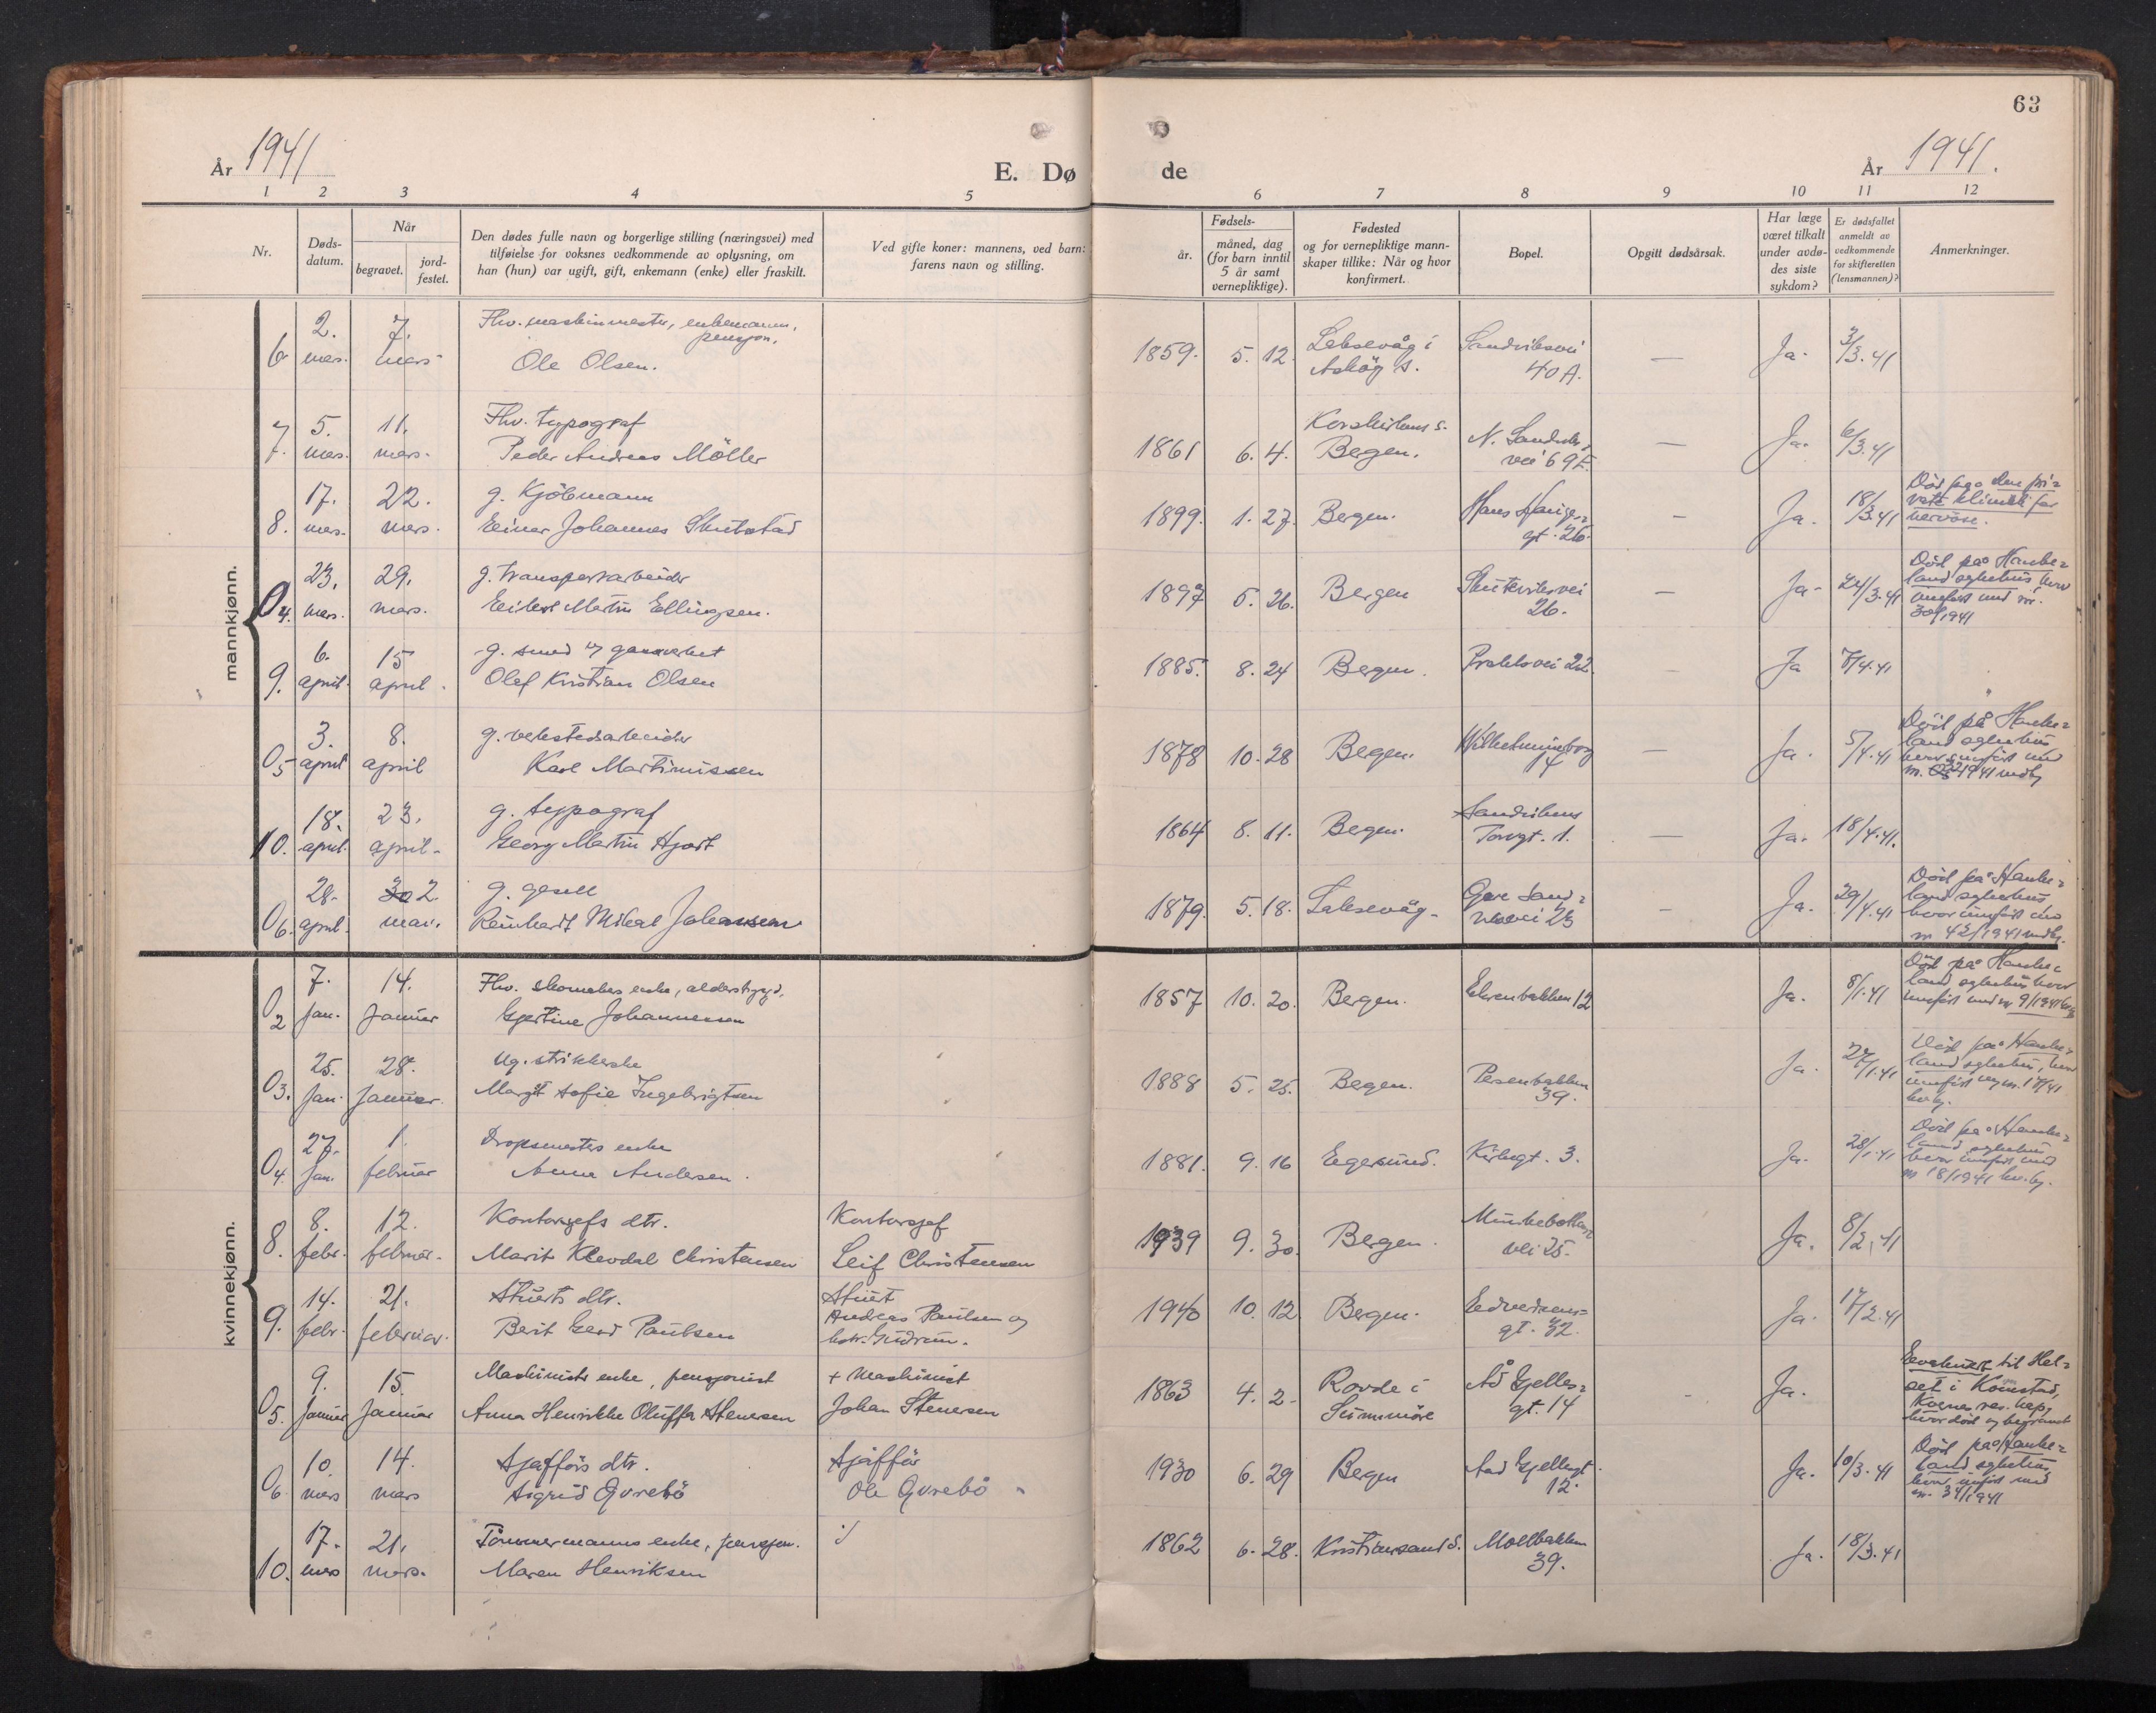 63
År 1941
E. Døde
År 1941.
1 2 3 4 5 6 7 8 9 10 11 12
Nr.
Døds-
datum.
Når
begravet.
jord-
festet.
Den dødes fulle navn og borgerlige stilling (næringsvei) med
tilføielse for voksnes vedkommende av oplysning, om
han (hun) var ugift, gift, enkemann (enke) eller fraskilt.
Ved gifte koner: mannens, ved barn:
farens navn og stilling.
Fødsels-
år.
måned, dag
(for barn inntil
5 år samt
vernepliktige).
Fødested
og for vernepliktige mann-
skaper tillike: Når og hvor
konfirmert.
Bopel.
Opgitt dødsårsak.
Har læge
været tilkalt
under avdø-
des siste
sykdom?
Er dødsfallet
anmeldt av
vedkommende
for skifteretten
(lensmannen)?
Anmerkninger.
mannkjønn.
2. 7. Fhv. maskinmester, enkemann,
pensjon.
6 mars. mars Ole Olsen. 1859. 5. 12. Laksevåg i Sandviksvei — Ja. 3/3.41
Askøy s. 40 A.
5. 11. Fhv. typograf Korskirkens s.
7. mars. mars. Peder Andreas Möller 1861 6. 4. Bergen. N. Sandviks — Ja. 6/3.41
vei 69 E.
17. 22. g. Kjöbmann Död på den pri=
8. mars. mars. Einar Johannes 1899. 1. 27. Bergen. Hans Hauges= — Ja. 18/3.41 vate klinikk for
gt. 26. nervöse.
23. 29. g. transportarbeider Död på Hauke=
04. mars. mars. Eilert Martin Ellingsen. 1897 5. 26. Bergen Skuteviksvei Ja- 24/3.41 land sykehus hvor
26. innfört und nr.
30/1941
6. 15 g. smed gassverket
9. april. april. Olaf Kristian Olsen 1885. 8. 24 Bergen. 22. — Ja 7/4.41
3. 8. g. verkstedsarbeider Död på Hauke=
05 april april Karl Martinussen 1878 10. 28 Bergen. Wilhelmineborg — Ja. 5/4.41 land sykehus
14 hvor innfört und
1941 mdkj
18. 23. g. typograf Sandvikens
10. april. april. Georg Martin Hjort 1864 8. 11. Bergen. Torvgt. 1. — Ja. 18/4.41.
28. 30 2. g. gesell Död på Hauke=
06. april. mai. Reinhardt Mikal Johansen 1879. 5. 18. Laksevåg - 23 — Ja. 29/4.41 land sykehus
hvor innfört und
nr 42/1941 mdkj.
kvinnekjønn.
7. 14. Fhv. skomakers enke, alderstrygd, Död på Hauke=
02 Jan. Januar Gjertine Johannessen 1857 10. 20. Bergen. 12 Ja. 8/1.41 land sykehus hvor
innfört und nr 9/1941
25. 28. Ug. strikkerske Död på Hauke=
03. Jan. Januar. Margit Sofie Ingebrigtsen 1888 5. 25. Bergen. Persenbakken Ja. 27/1.41 land sykehus, hvor
39. innfört
27. 1. enke Död på Hauke=
04. Jan. februar Anna Andersen. 1881. 9. 16 Egersund. Kirkegt. 3. Ja. 28/1.41 land sykehus
hvor innfört und
nr 18/1941 kv.kj.
8. 12. Kontorsjefs dtr. Kontorsjef
8. febr. februar. Marit Klevdal Christensen Leif Christensen 1939 9. 30. Bergen. Ja. 8/2.41
vei 25.
14. 21. Stuerts dtr. Stuert
9. febr. februar. Berit Gerd Paulsen Andreas Paulsen og 1940 10. 12 Bergen. Edvardsens= Ja. 17/2.41
hstr. Gudrun. gt. 32.
9. 15. Maskinists enke, pensjonist + Maskinist Evakuert til Hel=
05. Januar Januar Anna Henrikke Oluffa Stenersen Johan Stenersen 1863 4. 2- Rovde i Ad Gjelles= Ja. set i
Sunnmöre gt. 14 hvor död og begravet
10. 14. Sjafförs dtr. Sjafför Död på Hauke=
06. mars mars Sigrid Gurebö Ole Gurebö 1930 6. 29 Bergen Aad Gjellesgt. Ja. 10/3.41 land sykehus
12. hvor innfört und
nr. 34/1941
17. 21. Tömmermanns enke, pensjon. ./
10. mars mars. Maren Henriksen 1862 6. 28. Kristiansand S. Mollbakken Ja. 18/3.41
39.